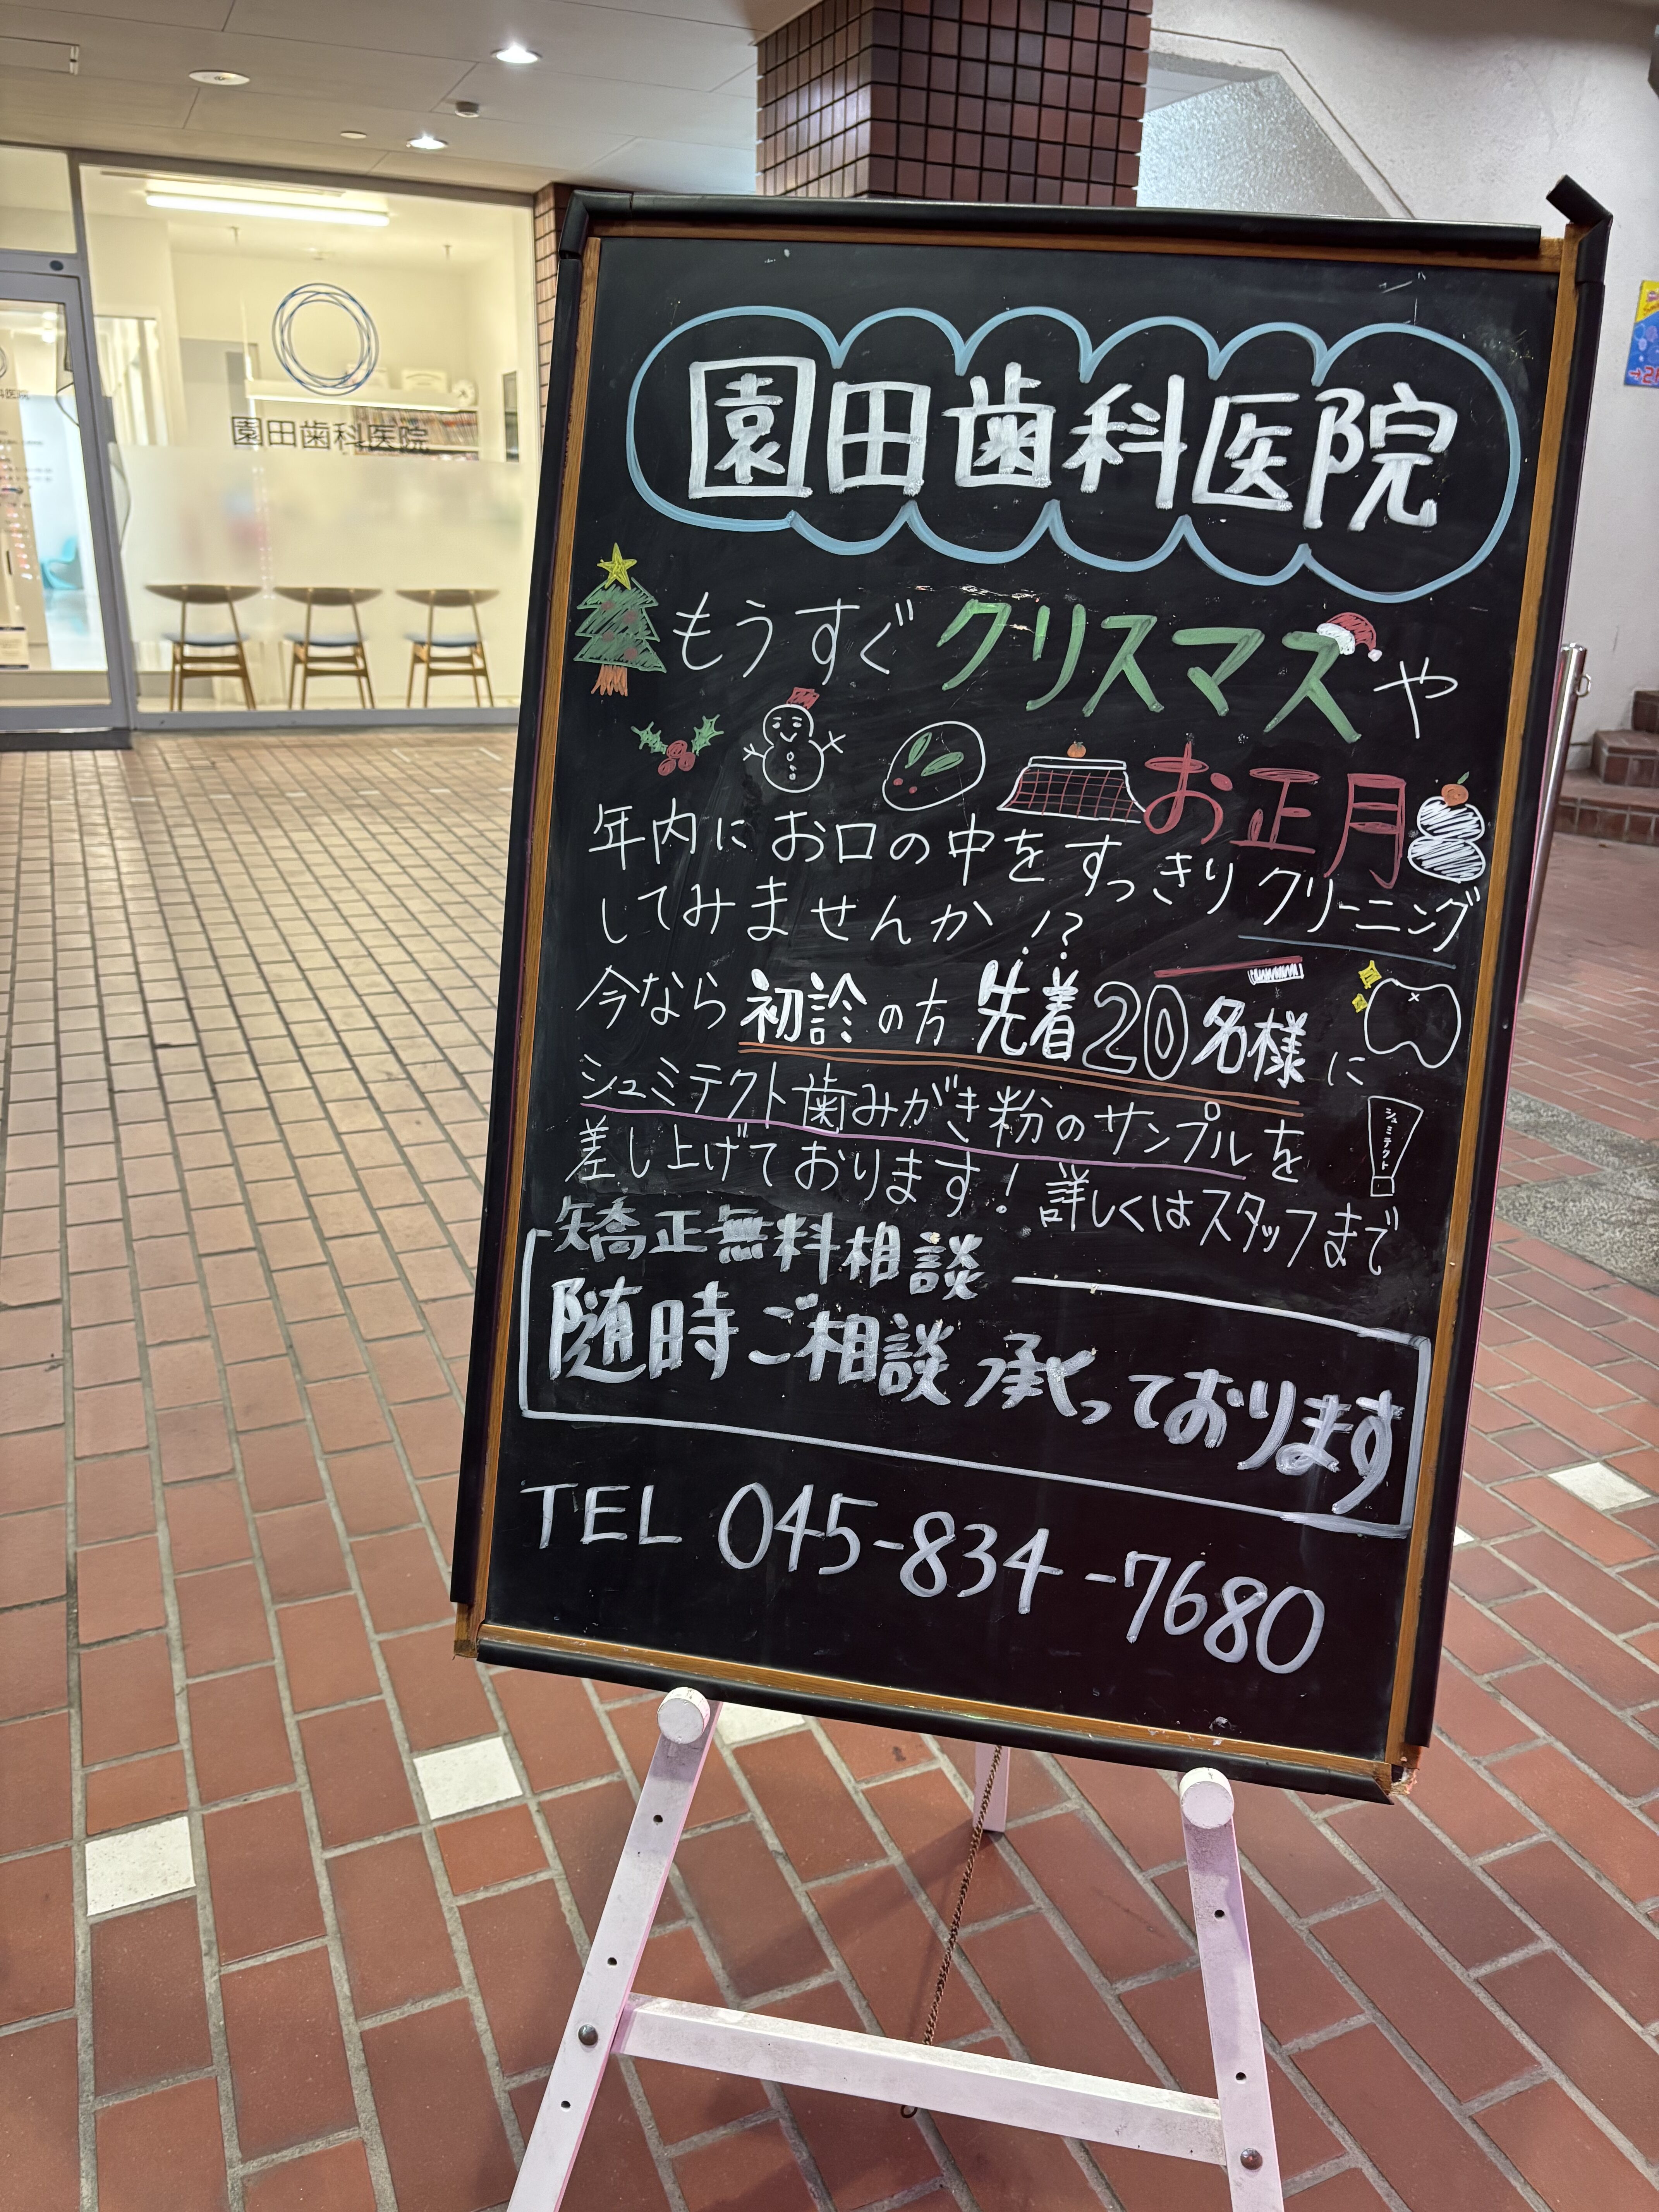 園田歯科医院
もうすぐクリスマスや
お正月
年内にお口の中をすっきりクリーニング
してみませんか!?
今なら初診の方先着20名様に
シュミテクト歯みがき粉のサンプルを
差し上げております! 詳しくはスタッフまで
シュミテクト
矯正無料相談
随時ご相談承っております
TEL 045-834-7680
園田歯科医院